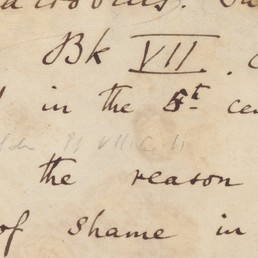 Bk VII.
in the 5th ce
Bk VII. C. 11
the reason
of shame in